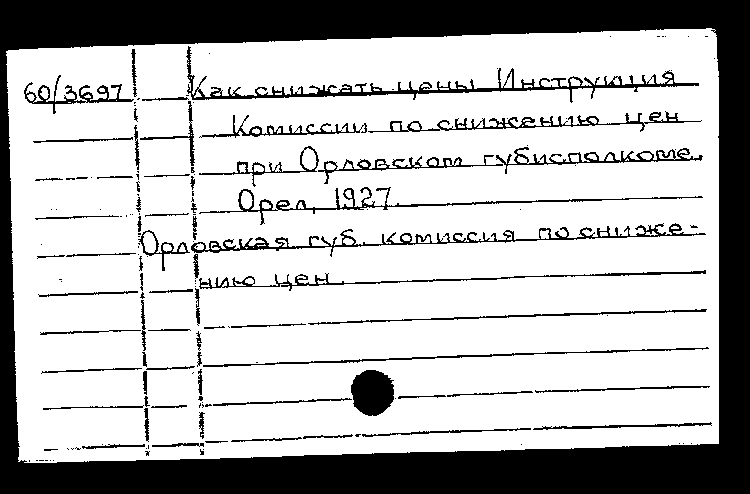 60/3697 Как снижать цены Инструкция
Комиссии по снижению цен
при Орловском губисполкоме.
Орел, 1927.
Орловская губ. комиссия по сниже-
нию цен.